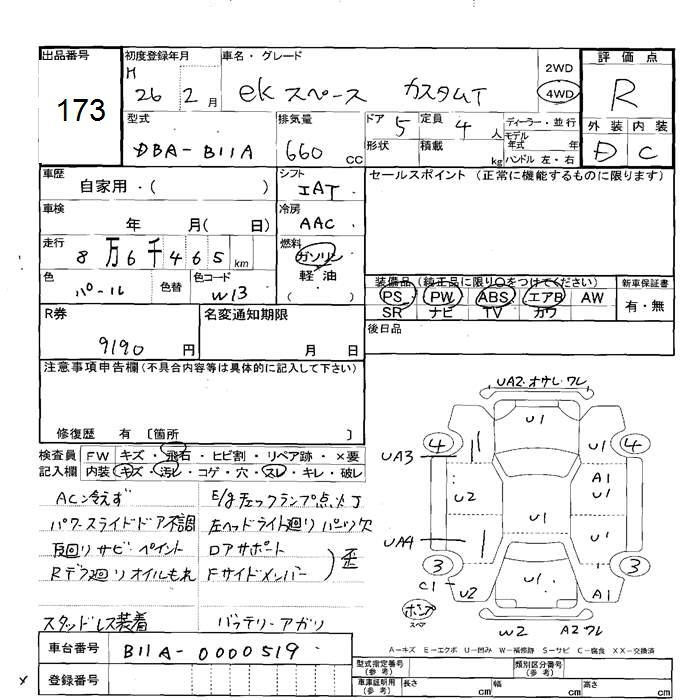 出品番号 初度登録年月 車名・グレード 2WD 評価点
173 H 26 2月 ekスペース カスタムT 4WD R
型式 排気量 ドア 定員 ディーラー・並行 外装 内装
DBA-B11A 660 CC 5 4人 モデル年式 年 D C
形状 積載 kg ハンドル 左・右
車歴 シフト セールスポイント (正常に機能するものに限ります)
自家用・( ) IAT
車検 冷房
年 月( 日) AAC
走行 燃料
8万6千465km ガソリン
色 色替 色コード 軽油
パール W13 ( )
装備品 (純正品に限り○をつけてください) 新車保証書
PS PW ABS エアB AW 有・無
SR ナビ TV カワ
R券 名変通知期限 後日品
9190円 月 日
注意事項申告欄(不具合内容等は具体的に記入して下さい)
修復歴 有 〔箇所 〕
検査員 FW キズ・飛石・ヒビ割・リペア跡・×要
記入欄 内装 キズ・汚レ・コゲ・穴・スレ・キレ・破レ
AC冷えず E/gチェックランプ点灯
パワースライドドア不調 左ヘッドライト廻りパーツ欠
下回りサビ・ペイント ロアサポート
Rデフ廻りオイルもれ Fサイドメンバー 歪
スタッドレス装着 バッテリーアガリ
UA2.オサレワレ
U1
4 4
UA3 U1 A1
U2 U1 U1
UA4
3 3
C1 U2 U1 A1
ホシア スペア
W2 A2ワレ
A-キズ E-エクボ U-凹み W-補修跡 S-サビ C-腐食 XX-交換済
車台番号 B11A-0000519
登録番号
型式指定番号(参考) 類別区分番号(参考)
車庫証明用(参考) 長さ cm 幅 cm 高さ cm